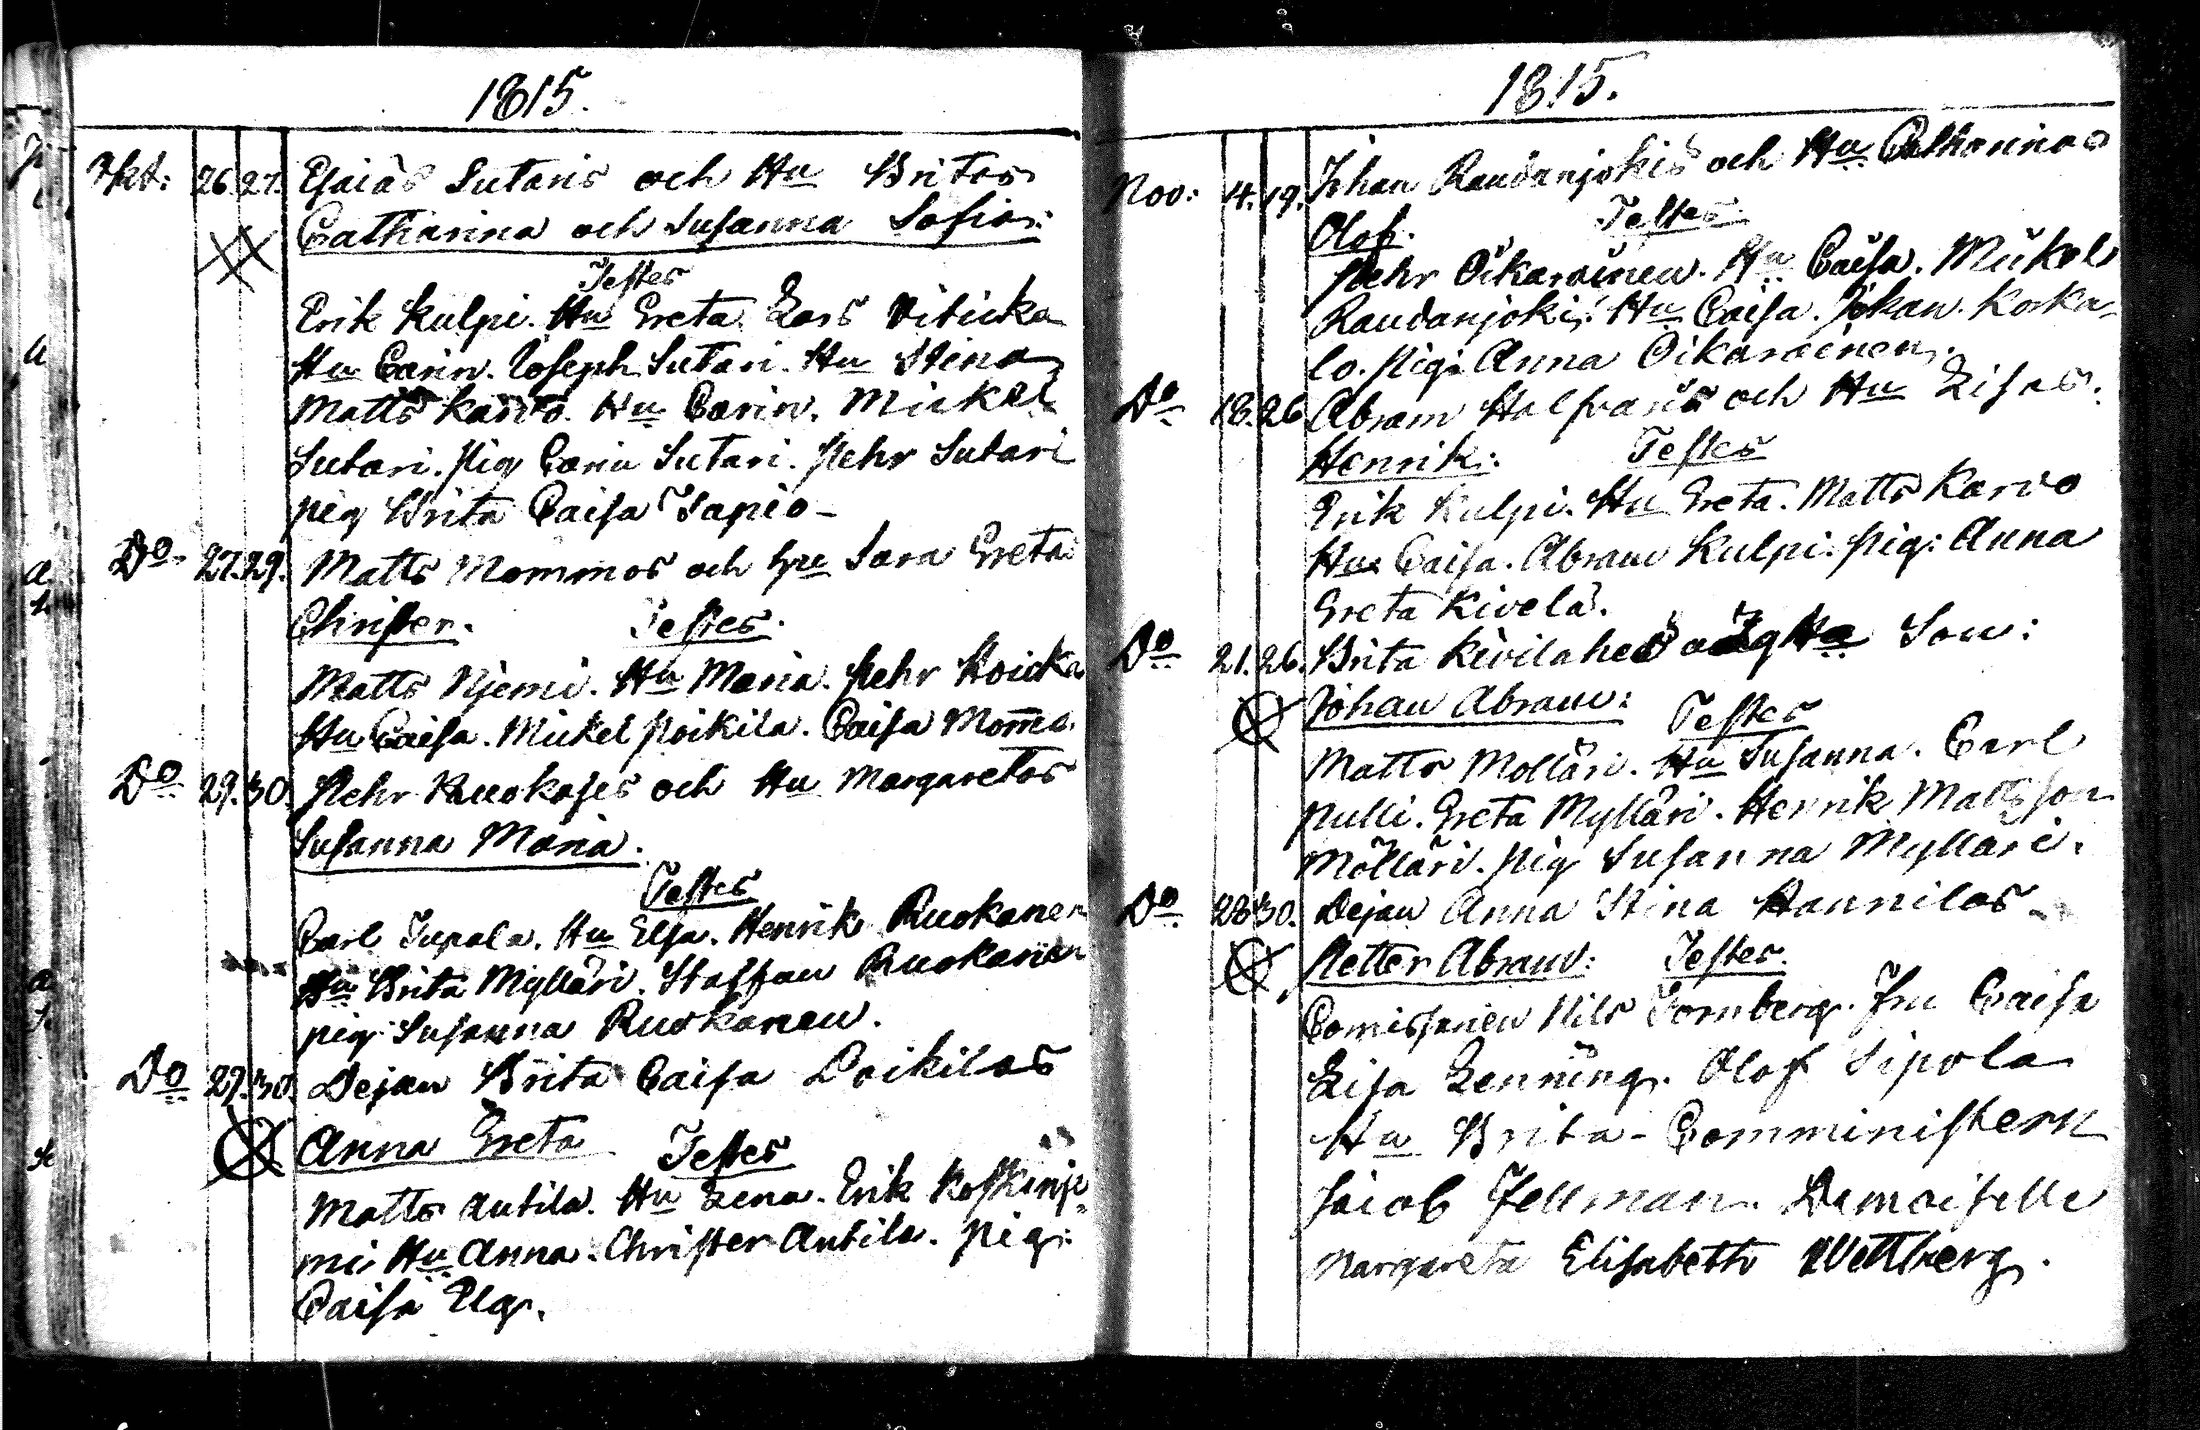 1815.
Okt: 26. 27. Esaias Sutaris och Hu Britas
Catharina och Susanna Sofia:
Testes
Erik Kulpi. Hu Greta. Lars Viticka
Hu Carin. Joseph Sutari. Hu Stina
Matts Karvo. Hu Carin. Mickel
Sutari. Pig Carin Sutari. Pehr Sutari
pig Brita Caisa Tapio-
Do 27. 29. Matts Mommos och Hu Sara Greta
Christer. Testes.
Matts Njemi. Hu Maria. Pehr Hoicka
Hu Caisa. Mickel Poikila. Caisa Mom̅a.
Do 29. 30. Pehr Ruokajes och Hu Margaretas
Susanna Maria.
Testes
Carl Jupala. Hu Elsa. Henrik Ruokanen
Hu Brita Mylläri. Staffan Ruokanen
pig Susanna Ruokanen.
Do 29. 30. Dejan Brita Caisa Poikilas
Anna Greta Testes
Matts Antila. Hu Lena. Erik Koskinje-
mi Hu Anna. Christer Antila. pig:
Caisa Elg.
1815.
Nov: 4. 19. Johan Raudanjokis och Hu Catharinas
Olof. Testes
Pehr Oikarainen. Hu Caisa. Mickel
Raudanjoki. Hu Caisa. Johan Korka-
lo. Pig: Anna Oikarainen.
Do 18. 26 Abram Halfvaris och Hu Lisas.
Henrik: Testes
Erik Kulpi. Hu Greta. Matts Karvo
Hu Caisa. Abram Kulpi. Pig: Anna
Greta Kivelä.
Do 21. 26. Brita Kivilahes Son:
Johan Abram: Testes
Matts Mölläri. Hu Susanna. Carl
Pulli. Greta Mylläri. Henrik Mattsson
Mölläri. Pig Susanna Mylläri.
Do 28 30. Dejan Anna Stina Hannilas
Petter Abram: Testes.
Comissarien Nils Fornberg. Fru Caisa
Lisa Lenning. Olof Sipola
Hu Brita - Comministern
Jacob Fellman. Demoiselle
Margareta Elisabeth Wettberg.